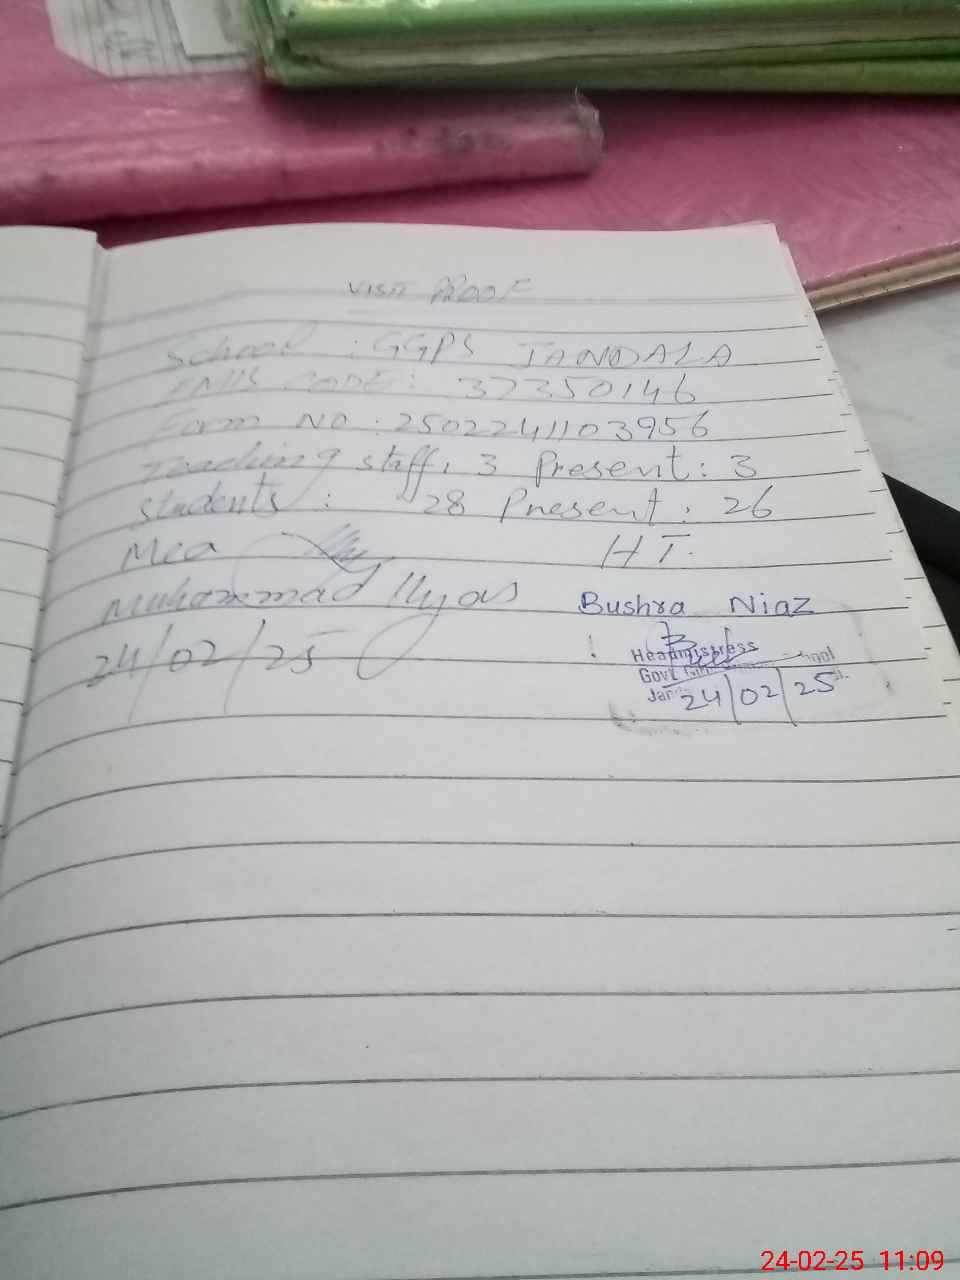 VISIT PROOF
School : GGPS JANDALA
EMIS CODE: 37350146
Form NO : 2502241103956
Teaching staff, 3 Present: 3
Students : 28 Present: 26
Mea HT.
Muhammad Ilyas Bushra Niaz
24/02/25
Headmistress
Govt
24/02/25
24-02-25 11:09